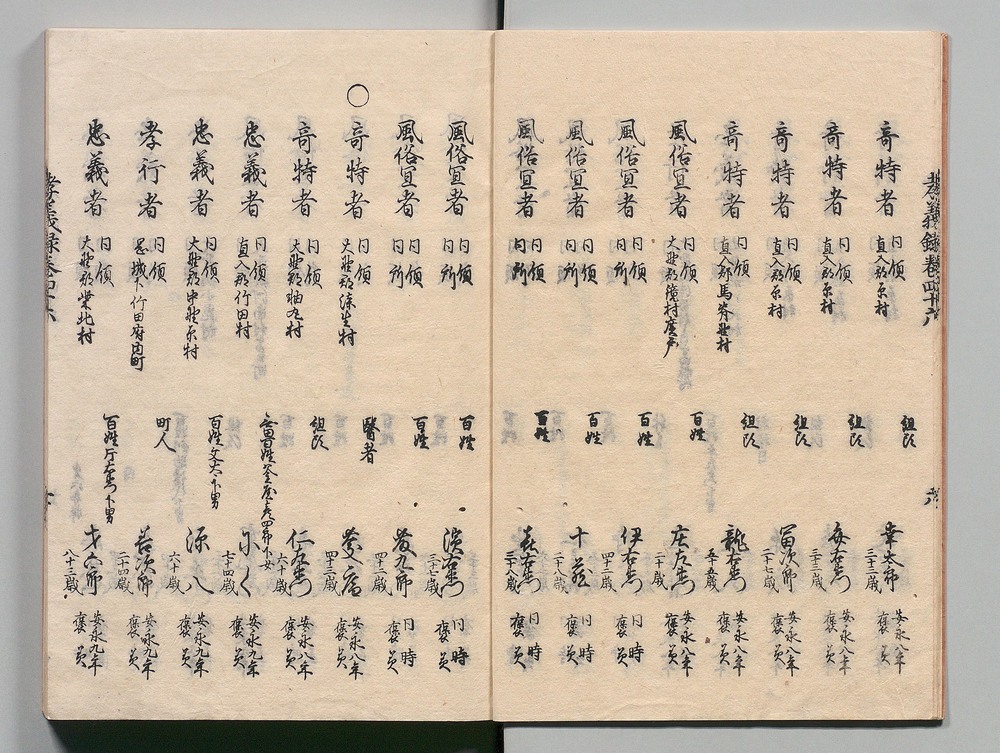 孝義録巻四十六
奇特者 同領直入郡原村 組頭 幸太郎 三十三歳 安永八年褒美
奇特者 同領直入郡原村 組頭 右衛門 三十三歳 安永八年褒美
奇特者 同領直入郡原村 組頭 冨次郎 二十七歳 安永八年褒美
奇特者 同領直入郡馬脊野村 組頭 龍右衛門 五十歳 安永八年褒美
風俗宜者 同領大野郡村 百姓 庄左衛門 二十歳 安永八年褒美
風俗宜者 同領同所 百姓 伊右衛門 四十二歳 同時褒美
風俗宜者 同領同所 百姓 十蔵 二十八歳 同時褒美
風俗宜者 同領同所 百姓 喜右衛門 三十八歳 同時褒美
風俗宜者 同領同所 百姓 濱右衛門 三十七歳 同時褒美
風俗宜者 同領同所 百姓 九郎 四十二歳 同時褒美
○奇特者 同領大野郡村 醫者 四十三歳 安永八年褒美
奇特者 同領大野郡柚九村 組頭 仁左衛門 六十歳 安永八年褒美
忠義者 同領直入郡竹田村 四郎下女 七十四歳 安永九年褒美
忠義者 同領大野郡中野原村 百姓文太下男 源八 六十歳 安永九年褒美
孝行者 同領居城下竹田府内町 町人 若次郎 二十四歳 安永九年褒美
忠義者 同領大野郡柴北村 百姓斤右衛門下男 才六郎 八十三歳 安永九年褒美
孝義録巻四十六